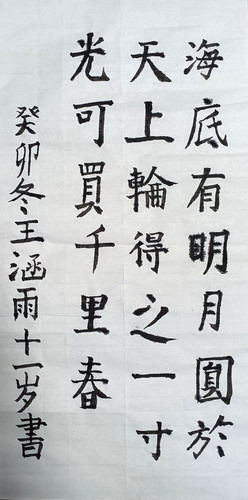 海底有明月圓於
天上輪得之一寸
光可買千里春
癸卯冬王涵雨十一岁書